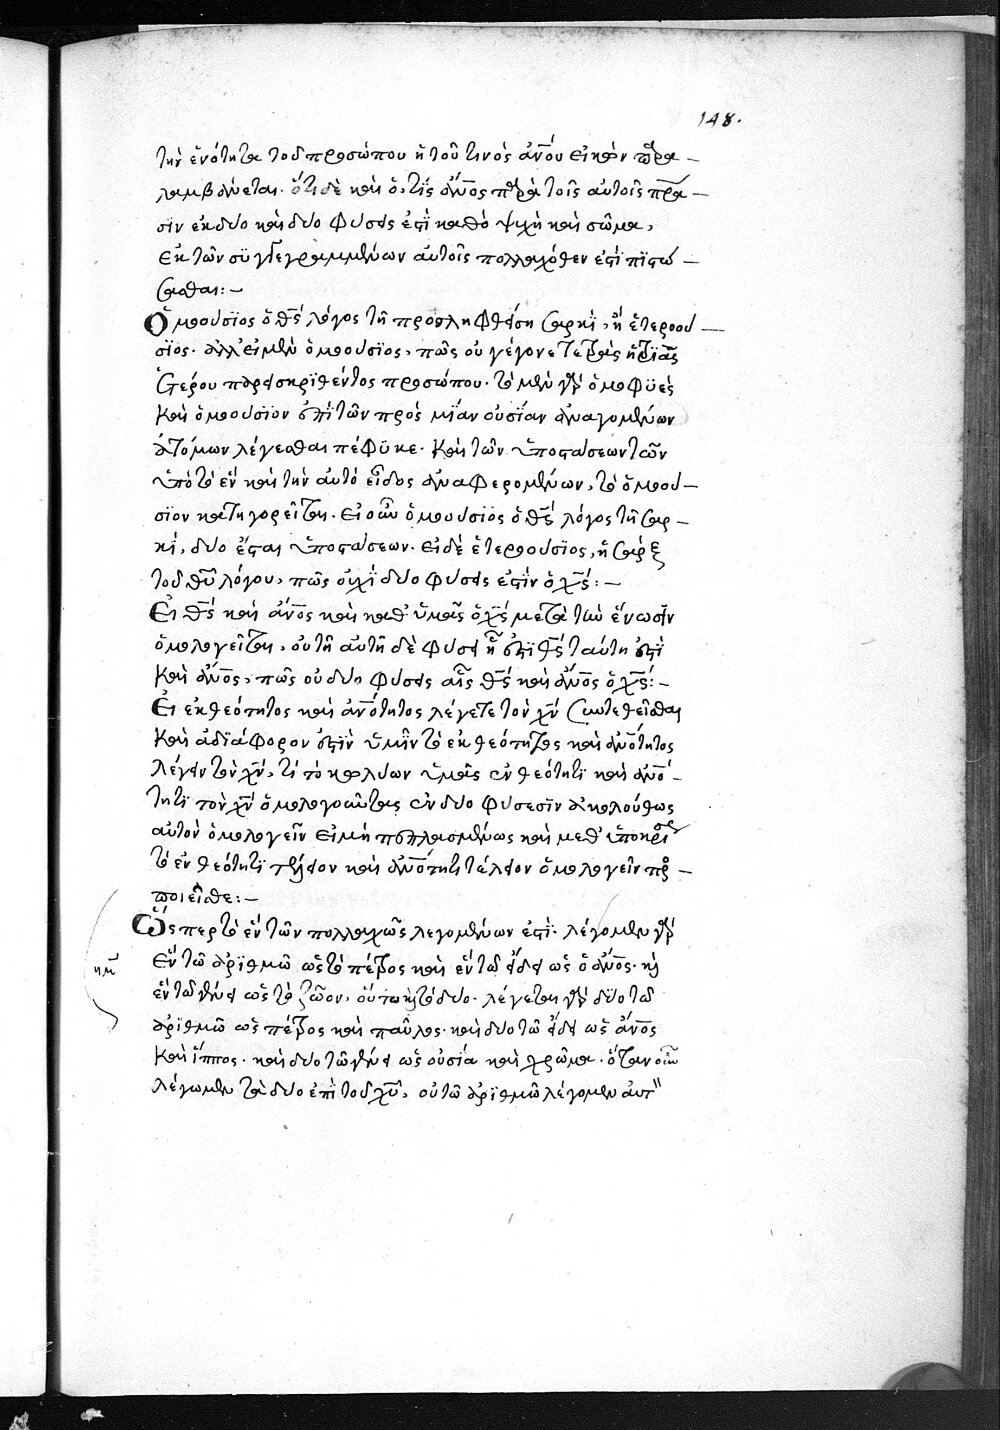 148.
τὴν ἑνότητα τοῦ προσώπου ἢ τοῦ τινὸς ἀνου εἰκὼν παρα
λαμβάνεται. ὅτι δὲ καὶ ὁ τὶς ἄνος παρὰ τοῖς αὐτοῖς πρά
σιν ἐκ δύο καὶ δύο φύσεις ἐστὶ καθὸ ψυχὴ καὶ σῶμα,
ἐκ τῶν συγγεγραμμένων αὐτοῖς πολλαχόθεν ἐστὶ πιστώ
σασθαι:
Ὁμοούσιος ὁ θς λόγος τῆ προσληφθείση σαρκὶ, ἢ ἑτεροού
σιος. ἀλλ' εἰ μὲν ὁμοούσιος, πῶς οὐ γέγονε τετρὰς ἡ τριὰς
ἑτέρου παρεισκριθέντος προσώπου. τὸ μὲν γὰρ ὁμοφυὲς
καὶ ὁμοούσιον ἐπὶ τῶν πρὸς μίαν οὐσίαν ἀναγομένων
ἀτόμων λέγεσθαι πέφυκε. καὶ τῶν ὑποστάσεων τῶν
ὑπὸ τὸ ἓν καὶ τὴν αὐτὸ εἶδος ἀναφερομένων, τὸ ὁμοού
σιον κατηγορεῖται. εἰ οὖν ὁμοούσιος ὁ θς λόγος τῆ σαρ
κὶ, δύο ἔσται ὑποστάσεων. εἰ δὲ ἑτεροούσιος, ἡ σὰρξ
τοῦ θυ λόγου, πῶς οὐχὶ δύο φύσεις ἐστὶν ὁ χς:
Εἰ θς καὶ ἄνος καὶ καθ' ὑμᾶς ὁ χς μετὰ τὴν ἕνωσιν
ὁμολογεῖται, οὐ τῆ αὐτῆ δὲ φύσει ἧ ἐστὶ θς ταύτη ἐστὶ
καὶ ἄνος, πῶς οὐ δύο φύσεις εἷς θς καὶ ἄνος ὁ χς:
Εἰ ἐκ θεότητος καὶ ἀνότητος λέγετε τὸν χν συντεθεῖσθαι
καὶ ἀδιάφορον ἐστὶν ὑμῖν τὸ ἐκ θεότητος καὶ ἀνότητος
λέγειν τὸν χν, τί τὸ κωλύων ὑμᾶς ἐν θεότητι καὶ ἀνό
τητι τὸν χν ὁμολογοῦντας ἐν δύο φύσεσιν ἀκολούθως
αὐτὸν ὁμολογεῖν εἰ μὴ πεπλασμένως καὶ μεθ' ὑποκρίσε
τὸ ἐν θεότητι τέλειον καὶ ἀνότητι τέλειον ὁμολογεῖν προσ
ποιεῖσθε:
Ὥσπερ τὸ ἓν τῶν πολλαχῶς λεγομένων ἐστί. λέγομεν γὰρ
ἓν τῶ ἀριθμῶ ὡς τὸ πέτρος καὶ ἓν τῶ εἴδει ὡς ὁ ἄνος. κὶ
ἓν τῶ γένει ὡς τὸ ζῶον, οὕτω κὶ τὸ δύο. λέγεται γὰρ δύο τῶ
ἀριθμῶ ὡς πέτρος καὶ παῦλος. καὶ δύο τῶ εἴδει ὡς ἄνος
καὶ ἵππος. καὶ δύο τῶ γένει ὡς οὐσία καὶ χρῶμα. ὅταν οὖν
λέγωμεν τὰ δύο ἐπὶ τοῦ χυ, οὐ τῶ ἀριθμῶ λέγομεν αὐτ